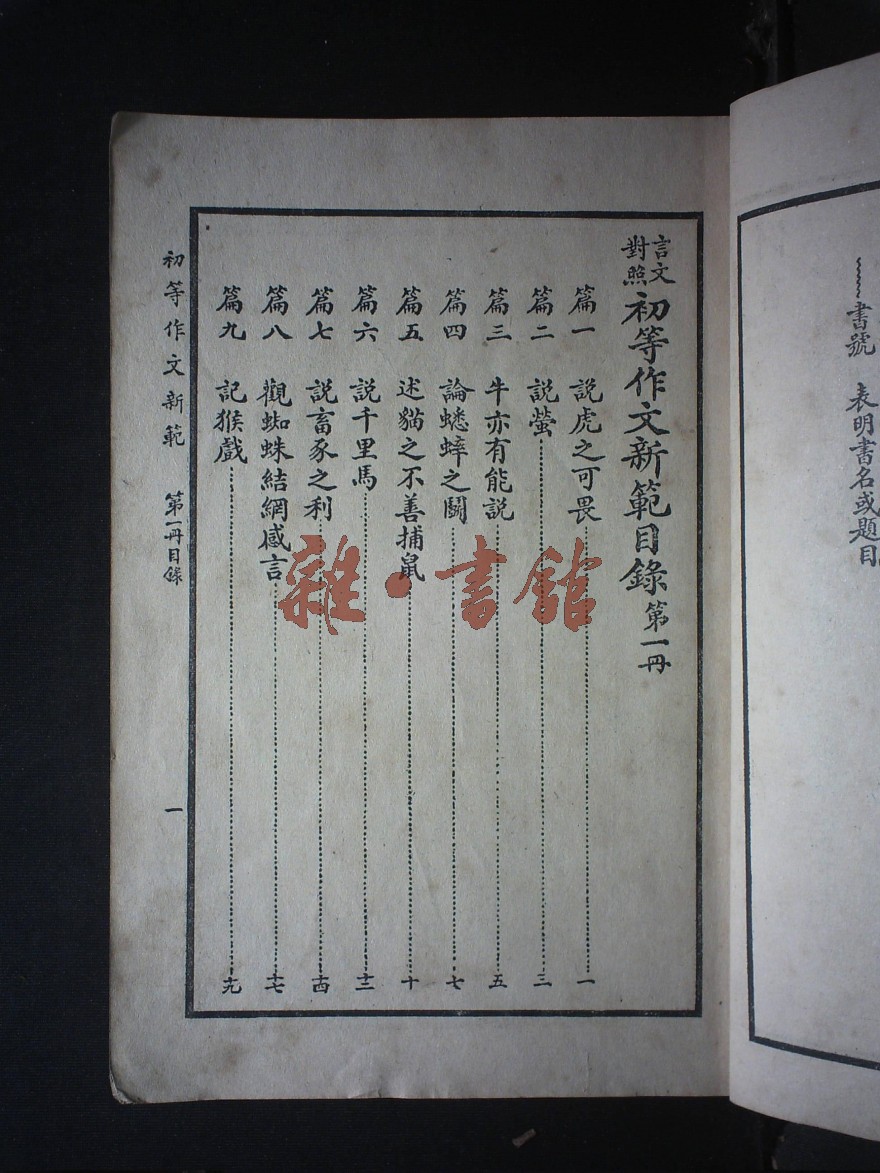 書號 表明書名或題目
言文對照 初等作文新範目錄 第一冊
篇一 説虎之可畏 一
篇二 説螢 三
篇三 牛亦有能説 五
篇四 論蟋蟀之鬭 七
篇五 述貓之不善捕鼠 十
篇六 説千里馬 十二
篇七 説畜豕之利 十四
篇八 觀蜘蛛結網感言 十七
篇九 記猴戲 十九
初等作文新範 第一冊目錄 一
雜·書館